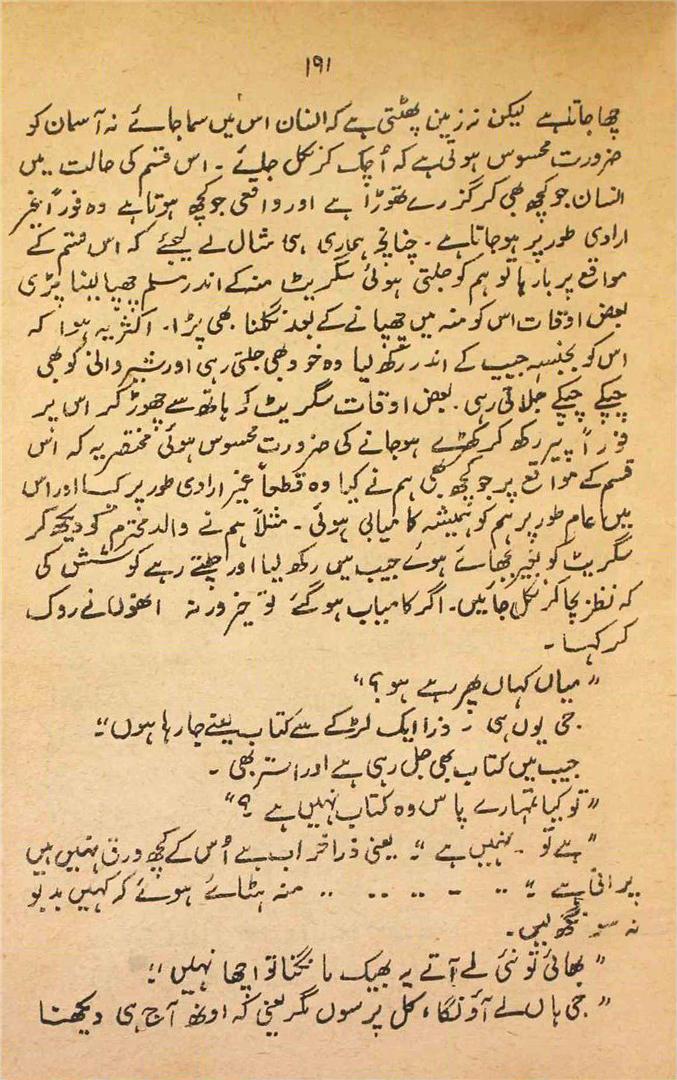 ۱۹۱
چھا جاتا ہے لیکن نہ زمین پھٹتی ہے کہ انسان اس میں سما جائے نہ آسمان کو
ضرورت محسوس ہوتی ہے کہ اُچک کر نکل جائے ۔ اس قسم کی حالت میں
انسان جو کچھ بھی کر گزرے تھوڑا ہے اور واقعی جو کچھ ہوتا ہے وہ فوراً غیر
ارادی طور پر ہو جاتا ہے ۔ چنانچہ ہماری ہی مثال لے لیجئے کہ اس قسم کے
مواقع پر بارہا تو ہم کو جلتی ہوئی سگریٹ منہ کے اندر مسلم چھپا لینا پڑی
بعض اوقات اس کو منہ میں چھپانے کے بعد نگلنا بھی پڑا۔ اکثر یہ ہوا کہ
اس کو بجنسہٖ جیب کے اندر رکھ لیا وہ خود بھی جلتی رہی اور شیروانی کو بھی
چپکے چپکے جلاتی رہی۔ بعض اوقات سگریٹ کو ہاتھ سے چھوڑ کر اس پر
فوراً پیر رکھ کر کھڑے ہو جانے کی ضرورت محسوس ہوئی مختصر یہ کہ اس
قسم کے مواقع پر جو کچھ بھی ہم نے کیا وہ قطعاً غیر ارادی طور پر کیا اور اس
میں عام طور پر ہم کو ہمیشہ کامیابی ہوئی ۔ مثلاً ہم نے والد محترم کو دیکھ کر
سگریٹ کو بغیر بجھائے ہوئے جیب میں رکھ لیا اور چلتے رہے کوشش کی
کہ نظر بچا کر نکل جائیں۔ اگر کامیاب ہو گئے تو خیر ورنہ انھوں نے روک
کر کہا ۔
" میاں کہاں پھر رہے ہو ؟ "
جی یوں ہی ۔ ذرا ایک لڑکے سے کتاب لینے جا رہا ہوں "
جیب میں کتاب بھی جل رہی ہے اور استر بھی ۔
" تو کیا تمہارے پاس وہ کتاب نہیں ہے ؟ "
" ہے تو ۔ نہیں ہے " یعنی ذرا خراب ہے اُس کے کچھ ورق نہیں ہیں
پرانی ہے " .. ـ .. .. .. منہ ہٹائے ہوئے کہ کہیں بد بو
نہ سونگھ لیں ۔
" بھائی تو نئی لے آتے یہ بھیک مانگنا تو اچھا نہیں "
" جی ہاں لے آؤنگا ، کل پرسوں مگر یعنی کہ اونھ آج ہی دیکھنا